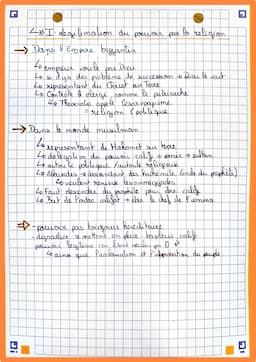 ↳ I légitimation du pouvoir par la religion
→ Dans l'Empire byzantin
↳ empereur voulu par Dieu
↳ si il y a des problème de succession → Dieu le veut
↳ représentant du Christ sur Terre
↳ Contrôle le clergé, nomme le patriarche
↳ Théocratie appelé Césaropapisme
= religion / politique
→ Dans le monde musulman
↳ représentant de Mahomet sur terre
↳ délégation du pouvoir calife → émir → sultan
↳ allie le politique / autorité religieuse
↳ Abbassides → descendant des hachémite (oncle du prophète)
↳ veulent renverser les ommeyyades
↳ Faut descendre du prophète pour être calife
↳ But de l'ordre califat → être le chef de l'umma
→ - pouvoir pas toujours héréditaire
- dynasties se mettent en place basileus calife
pouvoir légitime car Dieu
↳ ainsi que l'acclamation et l'approbation du peuple